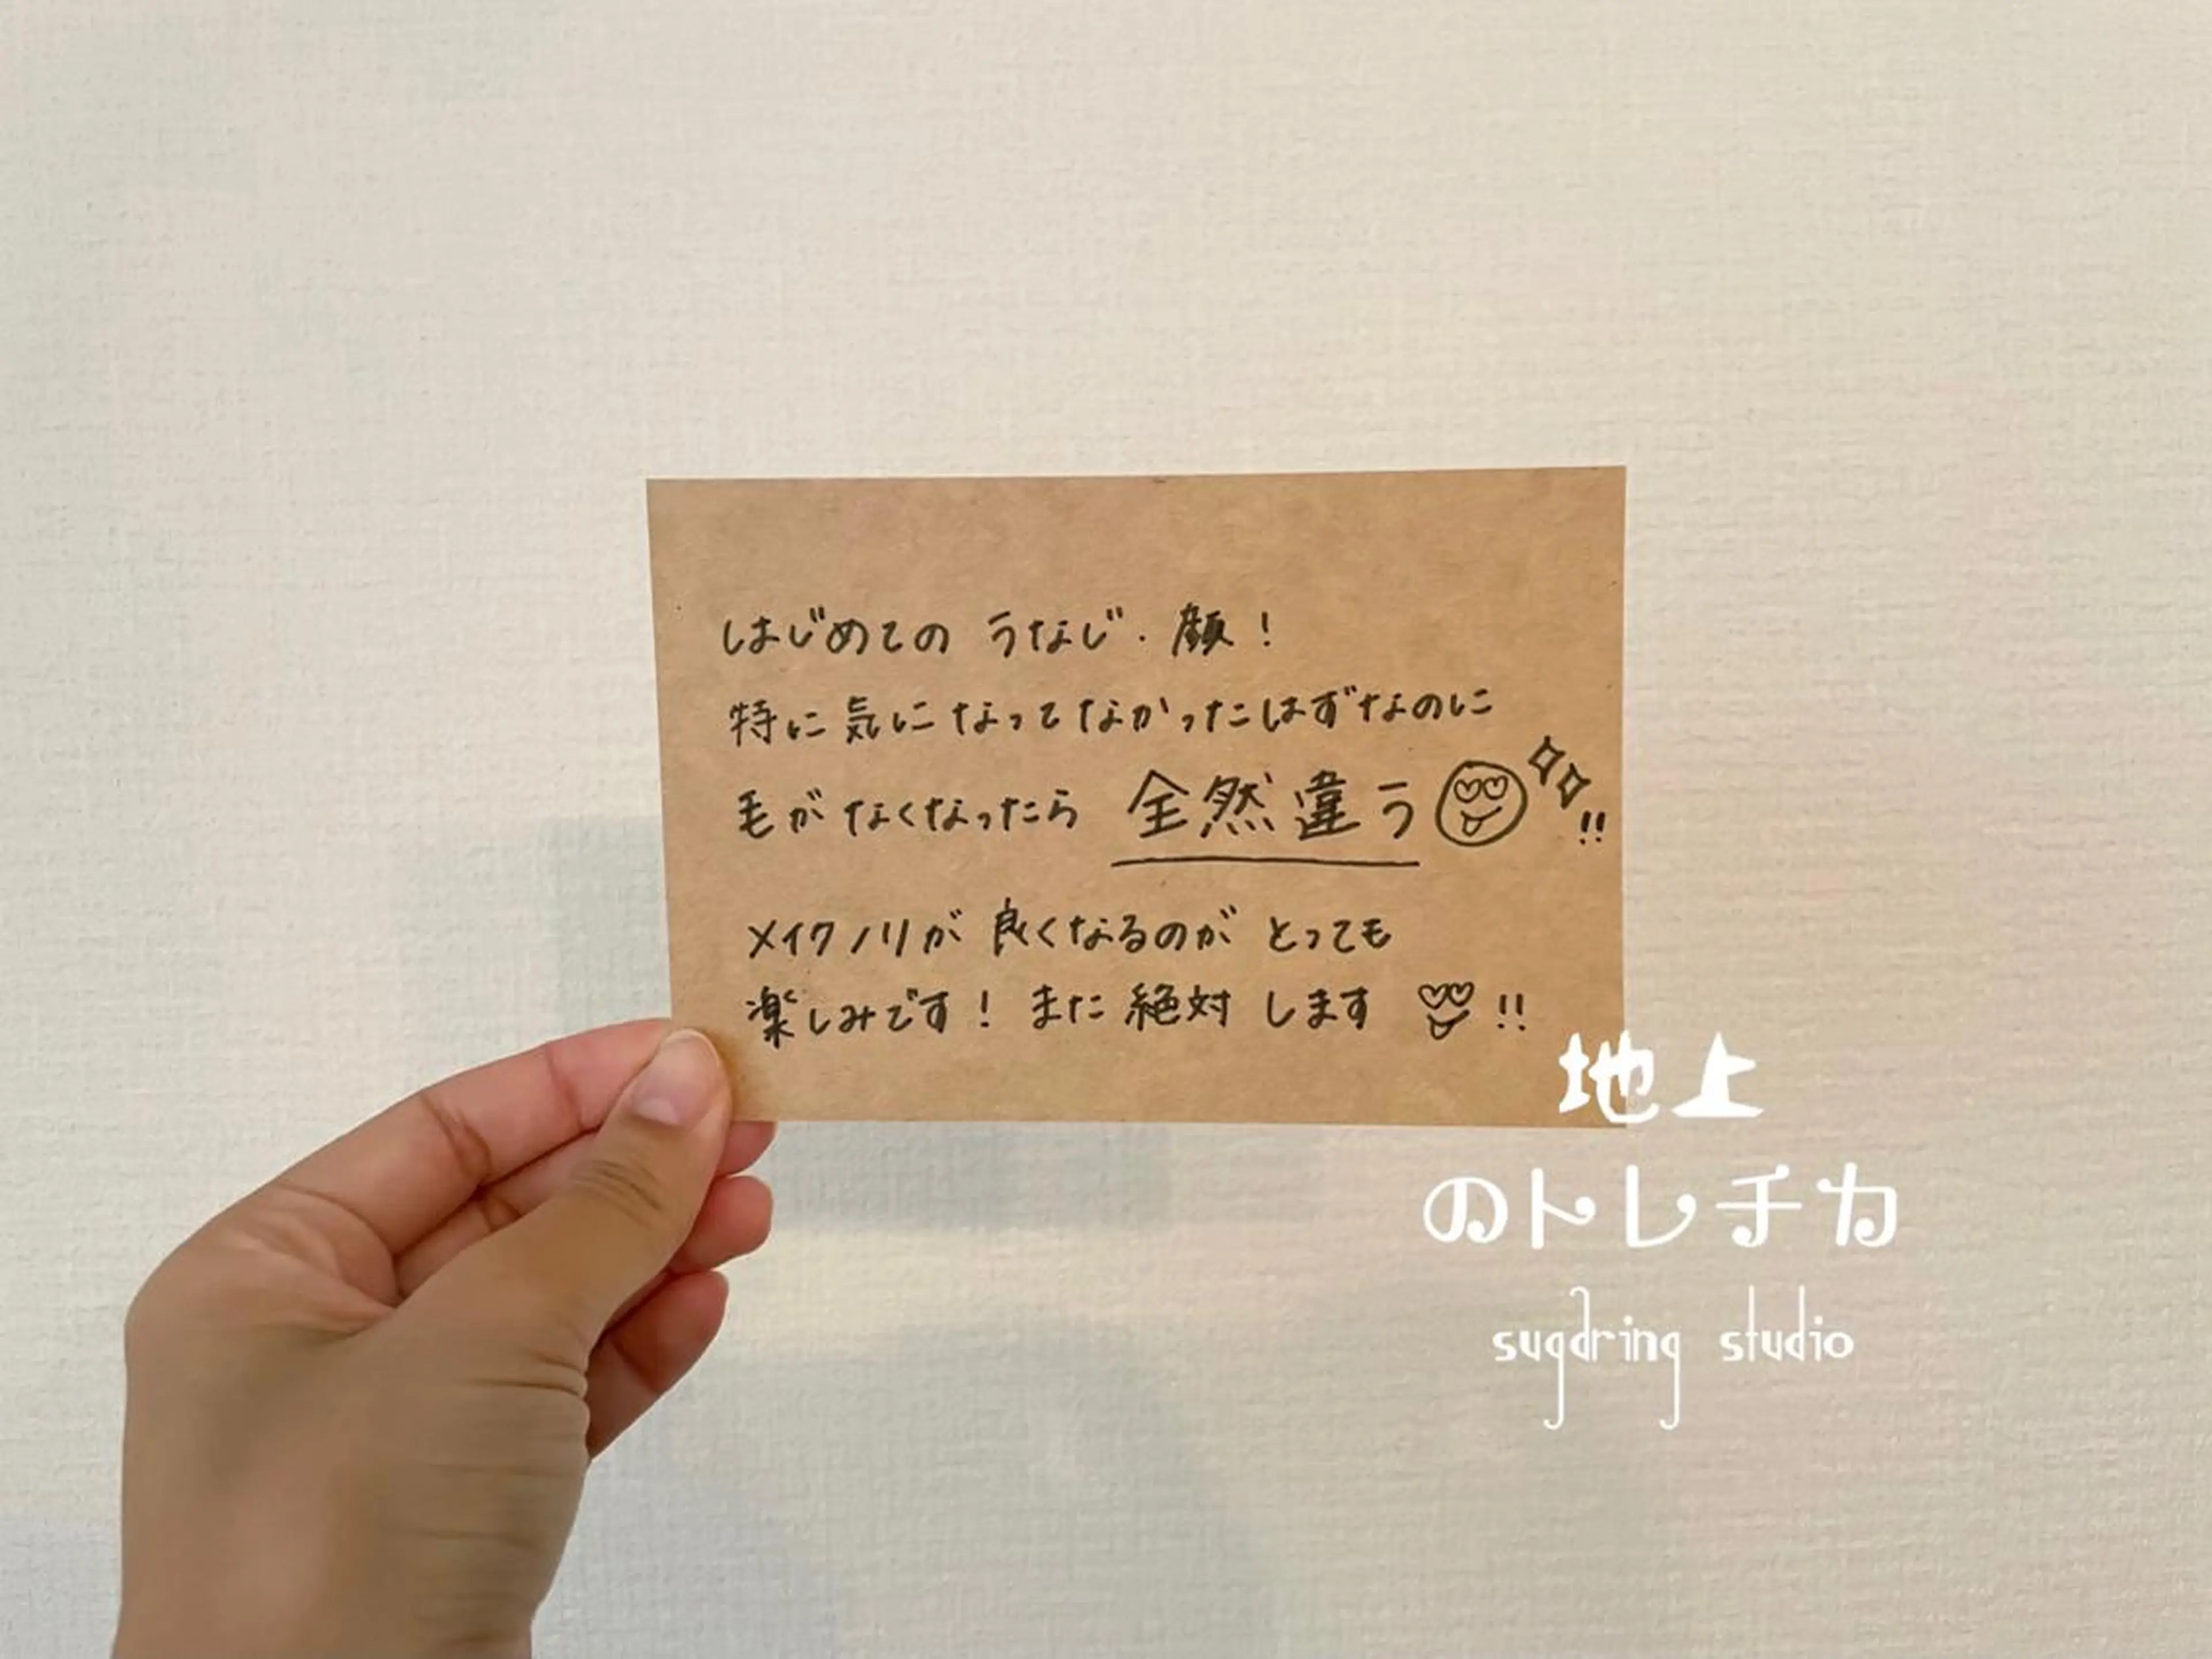 はじめての うなじ・顔！
特に気になってなかったはずなのに
毛がなくなったら 全然違う!!
メイクノリが良くなるのがとっても
楽しみです！ また絶対します!!
地上
のトレチカ
sugaring studio